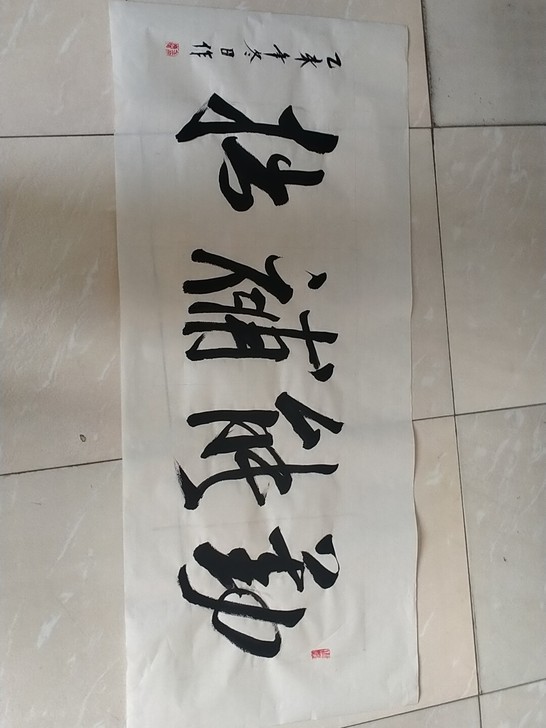 勤能補拙
乙未年冬日作